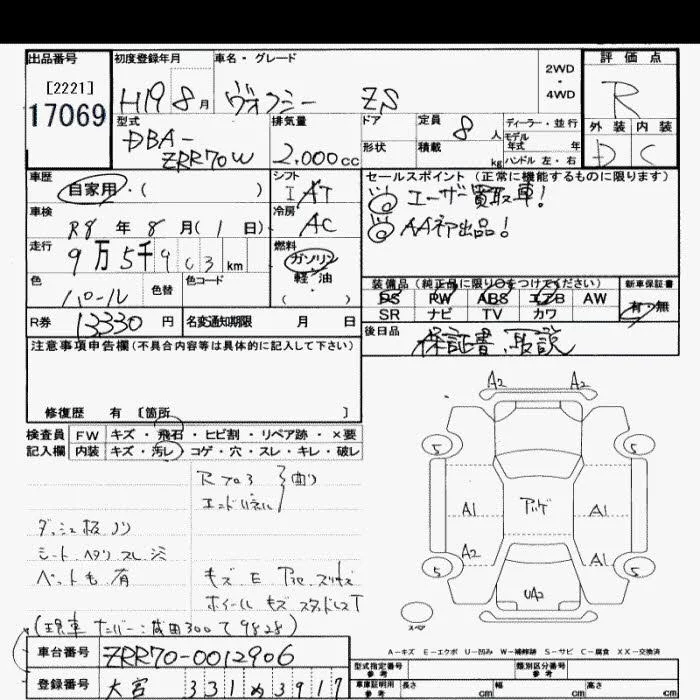 出品番号 初度登録年月 車名・グレード 評価点
[2221]
17069
H19 8月 ヴォクシー ZS 2WD・4WD R
型式 排気量 ドア 定員 ディーラー・並行 外装 内装
DBA-ZRR70W 2,000cc 8人 モデル年式 年 D C
形状 積載 kg ハンドル 左・右
車歴 シフト セールスポイント (正常に機能するものに限ります)
自家用・( ) I AT ◎ユーザー買取車!
車検 冷房 ◎AA初出品!
R8年8月(1日) AC
走行 燃料
9万5千903km ガソリン・軽・油・( )
色 色替 色コード 装備品(純正品に限り○をつけてください) 新車保証書
パール PS PW ABS エアB AW 有・無
SR ナビ TV カワ
R券 13330円 名変通知期限 月 日 後日品 保証書、取説
注意事項申告欄(不具合内容等は具体的に記入して下さい)
修復歴 有 [箇所 ]
検査員 FW キズ・飛石・ヒビ割・リペア跡・×要
記入欄 内装 キズ・汚レ・コゲ・穴・スレ・キレ・破レ
曲り
エンドパネル
シート ヘタリ スレ
ペット毛 有
キズ E
ホイールキズ スタッドレスT
A2 A2
5 5
A1 A1
A2 A1
5 5
UA2
スペア
(現車ナンバー:成田300て9828)
A-キズ E-エクボ U-凹み W-補修跡 S-サビ C-腐食 XX-交換済
車台番号 ZRR70-0012906 型式指定番号 参考 類別区分番号 参考
登録番号 大宮 331ぬ3917 車庫証明用 参考 長さ cm 幅 cm 高さ cm